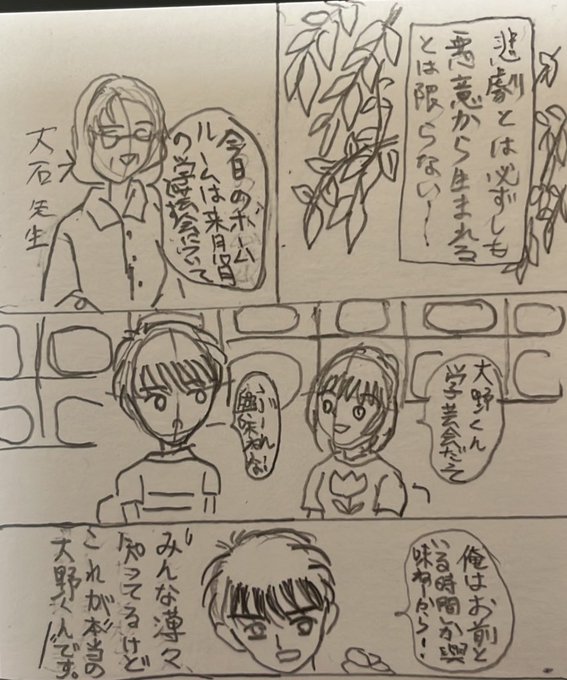 悲劇とは必ずしも
悪意から生まれる
とは限らない〜
今日のホーム
ルームは来月
の学芸会について
大石先生
大野くん
学芸会だって
ふーん
興味ねぇな
俺はお前と
いる時間しか興
味ねぇから!
みんな薄々
知ってるけど
これが本当の
大野くんです。